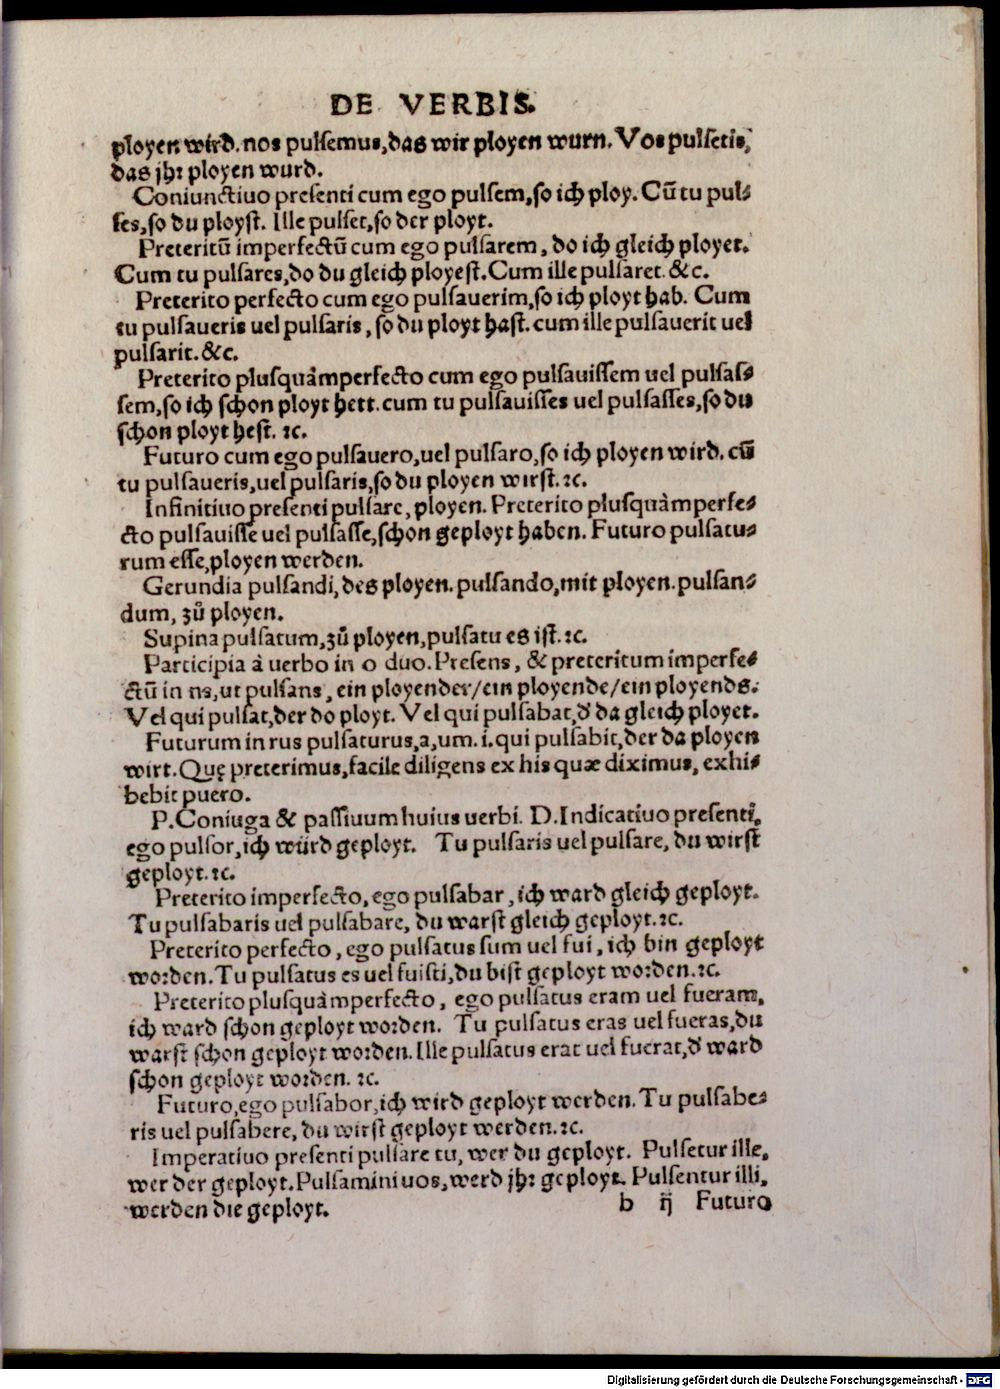 DE VERBIS.
ployen wird. nos pulsemus, das wir ployen wurn. Vos pulsetis,
das jhr ployen wurd.
Coniunctiuo presenti cum ego pulsem, so ich ploy. Cũ tu pul⸗
ses, so du ployst. Ille pulset, so der ployt.
Preteritũ imperfectũ cum ego pulsarem, do ich gleich ployet.
Cum tu pulsares, do du gleich ployest. Cum ille pulsaret. &c.
Preterito perfecto cum ego pulsauerim, so ich ployt hab. Cum
tu pulsaueris uel pulsaris, so du ployt hast. cum ille pulsauerit uel
pulsarit. &c.
Preterito plusquàmperfecto cum ego pulsauissem uel pulsas⸗
sem, so ich schon ployt hett. cum tu pulsauisses uel pulsasses, so du
schon ployt hest. ꝛc.
Futuro cum ego pulsauero, uel pulsaro, so ich ployen wird. cũ
tu pulsaueris, uel pulsaris, so du ployen wirst. ꝛc.
Infinitiuo presenti pulsare, ployen. Preterito plusquàmperfe⸗
cto pulsauisse uel pulsasse, schon geployt haben. Futuro pulsatu⸗
rum esse, ployen werden.
Gerundia pulsandi, des ployen. pulsando, mit ployen. pulsan⸗
dum, zů ployen.
Supina pulsatum, zů ployen, pulsatu es ist. ꝛc.
Participia à uerbo in o duo. Presens, & preteritum imperfe⸗
ctũ in ns, ut pulsans, ein ployender/ein ployende/ein ployends.
Vel qui pulsat, der do ployt. Vel qui pulsabat, d' da gleich ployet.
Futurum in rus pulsaturus, a, um. i. qui pulsabit, der da ployen
wirt. Quę preterimus, facile diligens ex his quæ diximus, exhi⸗
bebit puero.
P. Coniuga & passiuum huius uerbi. D. Indicatiuo presenti,
ego pulsor, ich würd geployt. Tu pulsaris uel pulsare, du wirst
geployt. ꝛc.
Preterito imperfecto, ego pulsabar, ich ward gleich geployt.
Tu pulsabaris uel pulsabare, du warst gleich geployt. ꝛc.
Preterito perfecto, ego pulsatus sum uel fui, ich bin geployt
worden. Tu pulsatus es uel fuisti, du bist geployt worden. ꝛc.
Preterito plusquàmperfecto, ego pulsatus eram uel fueram,
ich ward schon geployt worden. Tu pulsatus eras uel fueras, du
warst schon geployt worden. Ille pulsatus erat uel fuerat, d' ward
schon geployt worden. ꝛc.
Futuro, ego pulsabor, ich wird geployt werden. Tu pulsabe⸗
ris uel pulsabere, du wirst geployt werden. ꝛc.
Imperatiuo presenti pulsare tu, wer du geployt. Pulsetur ille,
wer der geployt. Pulsamini uos, werd jhr geployt. Pulsentur illi,
werden die geployt.
b ij Futuro
Digitalisierung gefördert durch die Deutsche Forschungsgemeinschaft - DFG